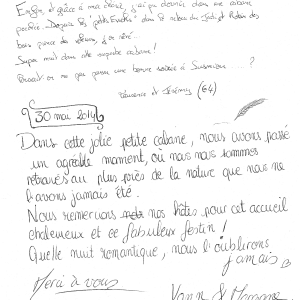 Enfin, et grâce à ma chérie, j'ai pu dormir dans une cabane
perchée... Depuis les "petits Ewoks" dans le retour du Jedi, et Robin des
bois prince des voleurs, j'en rêvé...
Super nuit dans cette superbe cabane !
(64)
30 mai 2014
Dans cette jolie petite cabane, nous avons passé
un agréable moment, où nous nous sommes
retrouvés au plus près de la nature que nous ne
l'avons jamais été.
Nous remercions nos hôtes pour cet accueil
chaleureux et ce fabuleux festin !
Quelle nuit romantique, nous l'oublirons
jamais
Merci à vous
Yann &